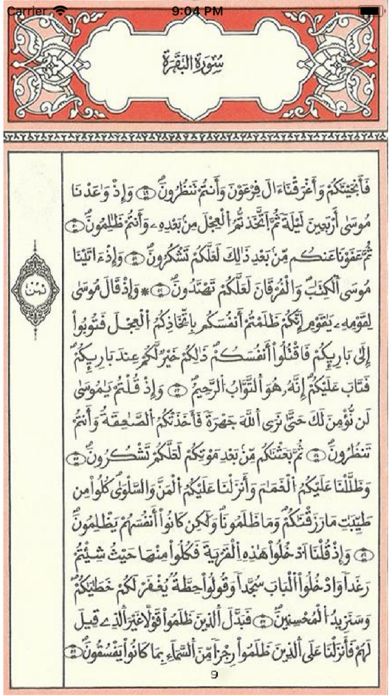 Carrier 9:04 PM
سُورَةُ الْبَقَرَةِ
فَأَنجَيْنَٰكُمْ وَأَغْرَقْنَا ءَالَ فِرْعَوْنَ وَأَنتُمْ تَنظُرُونَ وَإِذْ وَٰعَدْنَا
مُوسَىٰ أَرْبَعِينَ لَيْلَةً ثُمَّ اَتَّخَذتُّمُ الْعِجْلَ مِنۢ بَعْدِهِۦ وَأَنتُمْ ظَٰلِمُونَ
ثُمَّ عَفَوْنَا عَنكُم مِّنۢ بَعْدِ ذَٰلِكَ لَعَلَّكُمْ تَشْكُرُونَ وَإِذَ اٰتَيْنَا
مُوسَى اَلْكِتَٰبَ وَالْفُرْقَانَ لَعَلَّكُمْ تَهْتَدُونَ * وَإِذْ قَالَ مُوسَىٰ
ثمن
لِقَوْمِهِۦ يَٰقَوْمِ إِنَّكُمْ ظَلَمْتُمُ أَنفُسَكُم بِاتِّخَاذِكُمُ الْعِجْلَ فَتُوبُوٓا۟
إِلَىٰ بَارِئِكُمْ فَاقْتُلُوٓا۟ أَنفُسَكُمْ ذَٰلِكُمْ خَيْرٌ لَّكُمْ عِندَ بَارِئِكُمْ
فَتَابَ عَلَيْكُمُۥٓ إِنَّهُۥ هُوَ التَّوَّابُ الرَّحِيمُ وَإِذْ قُلْتُمْ يَٰمُوسَىٰ
لَن نُّومِنَ لَكَ حَتَّىٰ نَرَى اَللَّهَ جَهْرَةً فَأَخَذَتْكُمُ الصَّٰعِقَةُ وَأَنتُمْ
تَنظُرُونَ ثُمَّ بَعَثْنَٰكُم مِّنۢ بَعْدِ مَوْتِكُمْ لَعَلَّكُمْ تَشْكُرُونَ
وَظَلَّلْنَا عَلَيْكُمُ الْغَمَٰمَ وَأَنزَلْنَا عَلَيْكُمُ الْمَنَّ وَالسَّلْوَىٰ كُلُوا۟ مِن
طَيِّبَٰتِ مَا رَزَقْنَٰكُمْ وَمَا ظَلَمُونَا وَلَٰكِن كَانُوٓا۟ أَنفُسَهُمْ يَظْلِمُونَ
وَإِذْ قُلْنَا اَدْخُلُوا۟ هَٰذِهِ الْقَرْيَةَ فَكُلُوا۟ مِنْهَا حَيْثُ شِئْتُمْ
رَغَدًا وَادْخُلُوا۟ الْبَابَ سُجَّدًا وَقُولُوا۟ حِطَّةٌ يُغْفَرْ لَكُمْ خَطَٰيَٰكُمْ
وَسَنَزِيدُ الْمُحْسِنِينَ فَبَدَّلَ الذِينَ ظَلَمُوا۟ قَوْلًا غَيْرَ الذِے قِيلَ
لَهُمْ فَأَنزَلْنَا عَلَى اَلذِينَ ظَلَمُوا۟ رِجْزًا مِّنَ السَّمَآءِ بِمَا كَانُوا۟ يَفْسُقُونَ
9